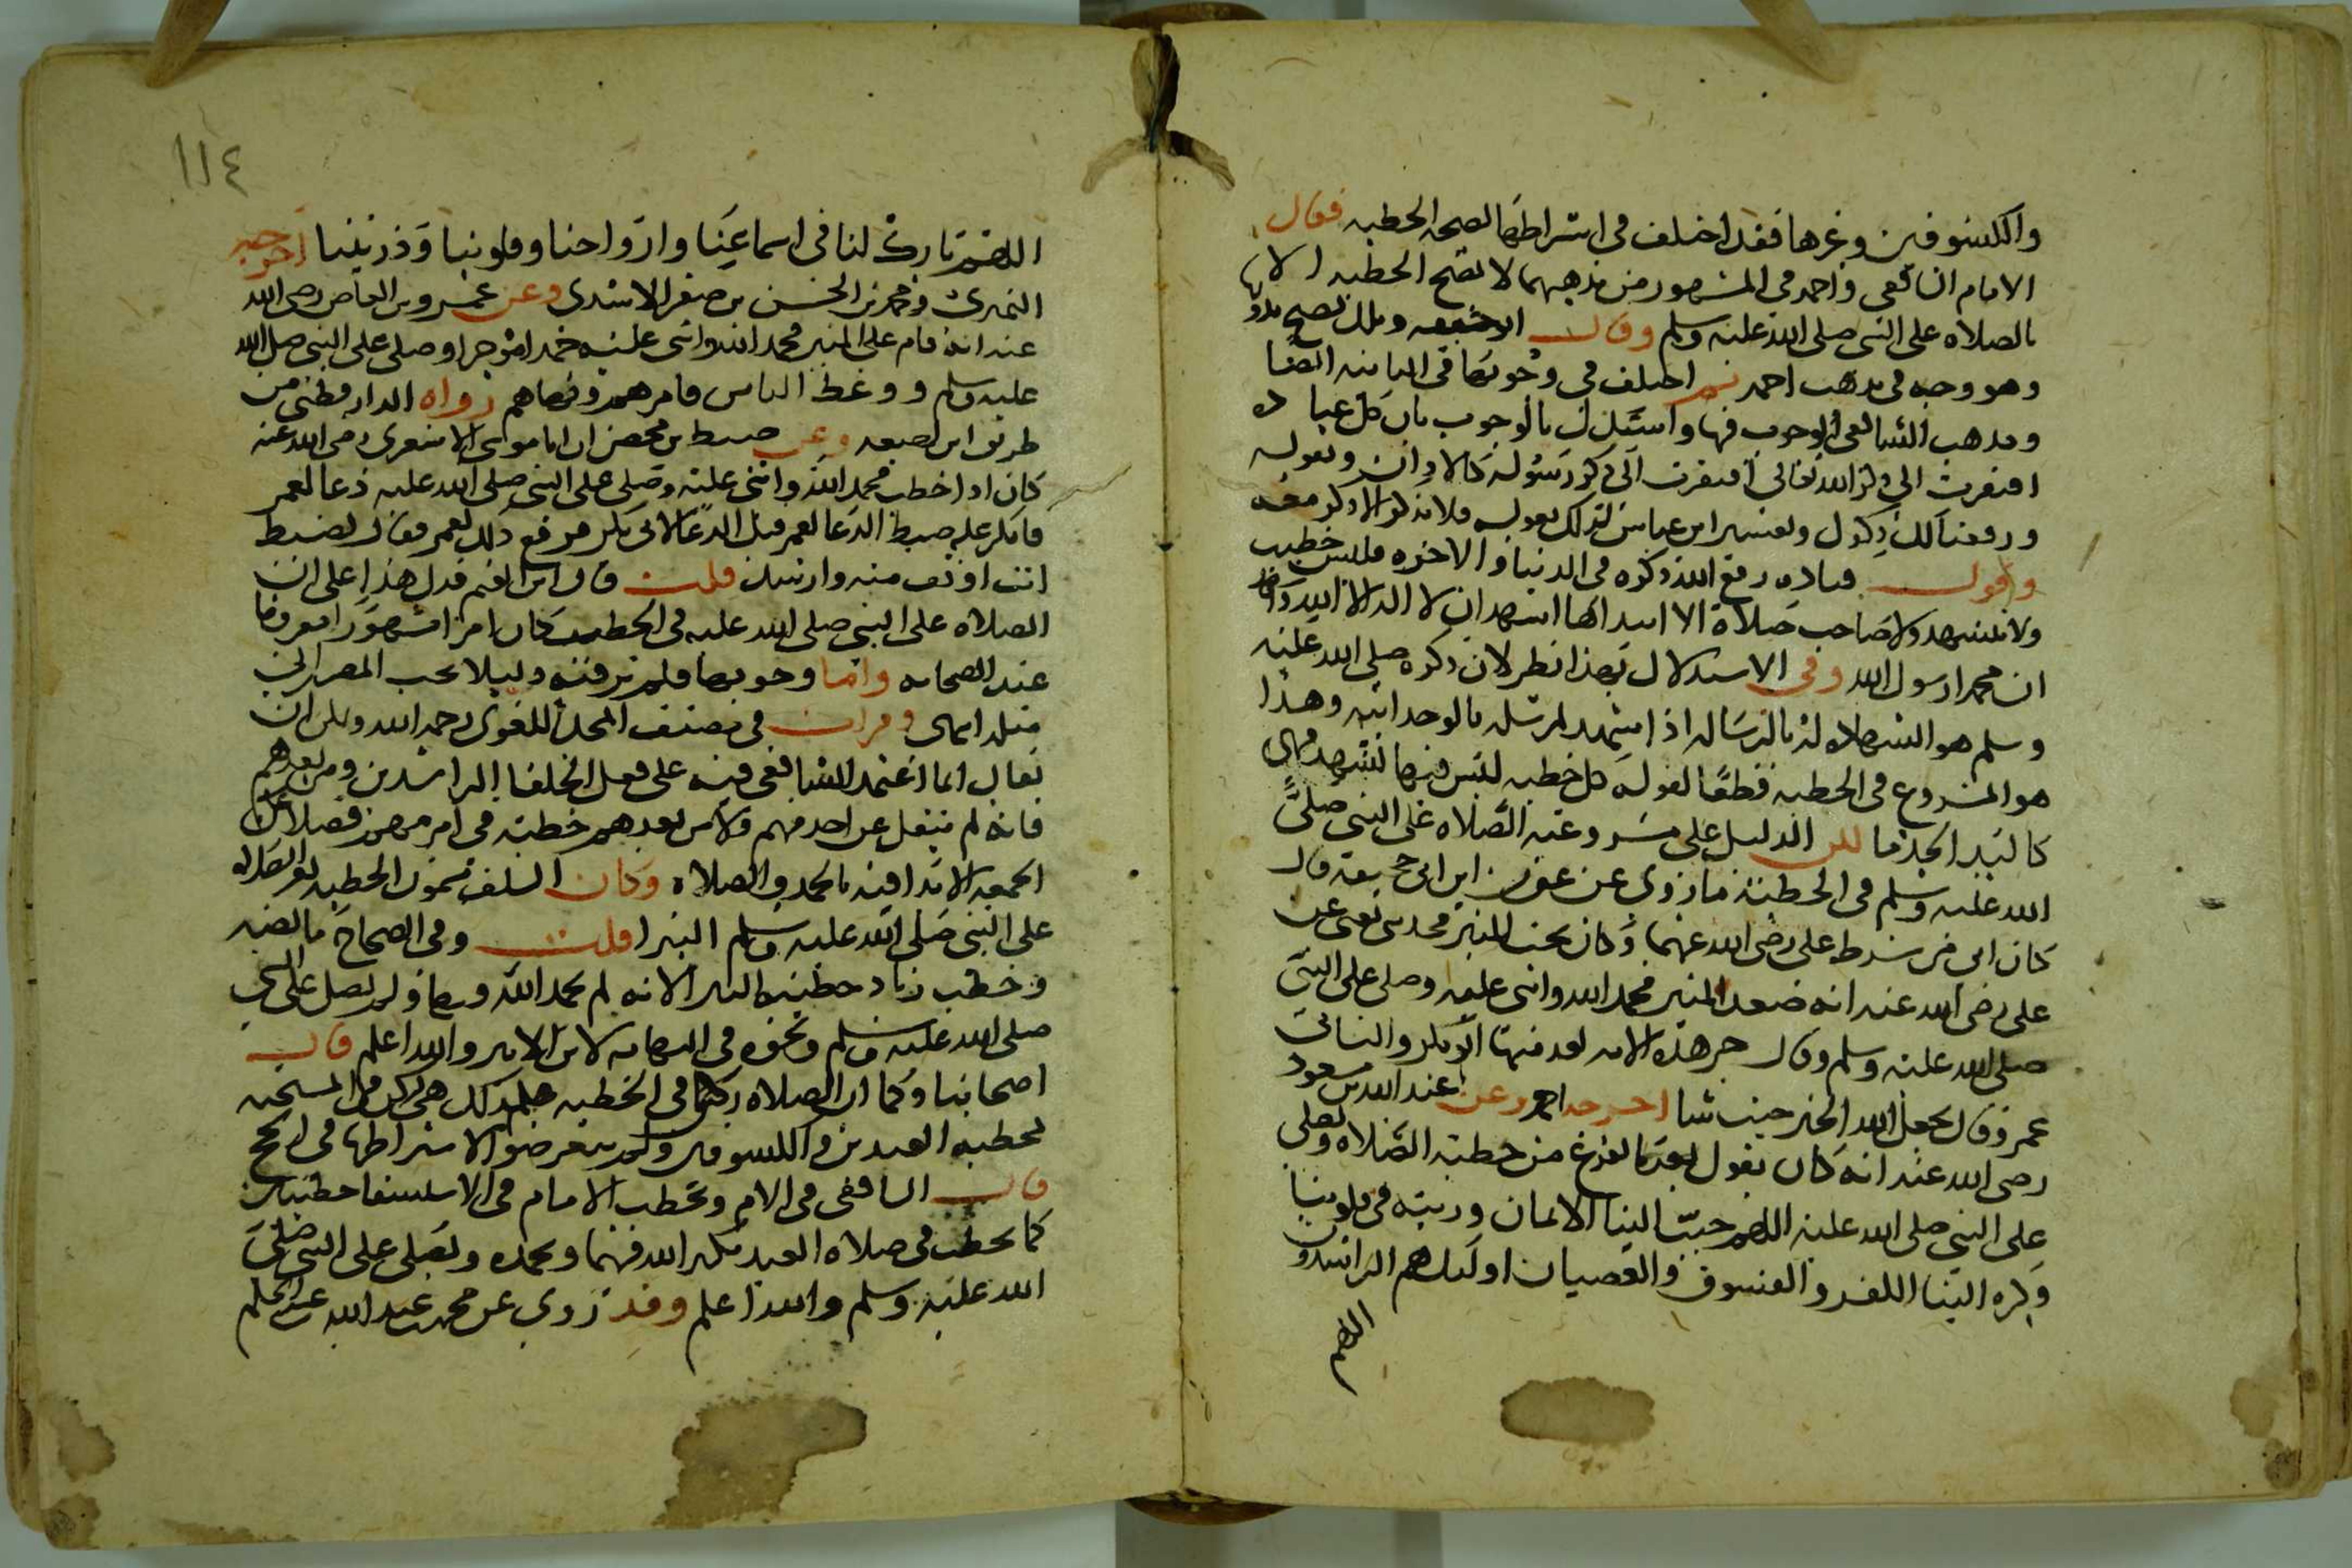 والكسوفين وغيرها فقد اختلف في اشتراطها لصحة الخطبه فقال
الامام الشافعي واحمد في المشهور من مذهبهما لا تصح الخطبه الا بها
بالصلاه على النبي صلى الله عليه وسلم وقال ابو حنيفه ومالك تصح بدونها
وهو وجه في مذهب احمد ثم اختلف في وجوبها في الثانيه ايضا
ومذهب الشافعي الوجوب فيها واستدل بالوجوب بان كل عباده
افتقرت الى ذكر الله تعالى افتقرت الى ذكر رسوله كالاذان وبقوله
ورفعنا لك ذكرك وتفسير ابن عباس لذلك بقوله فلا يذكر الا ذكر معه
وقول قتاده رفع الله ذكره في الدنيا والاخره فليس خطيب
ولا متشهد ولا صاحب صلاة الا ابتداها اشهد ان لا اله الا الله واشهد
ان محمدا رسول الله وفي الاستدلال بهذا نظر لان ذكره صلى الله عليه
وسلم هو الشهاده له بالرساله اذا شهد لمرسله بالوحدانيه وهذا
هو المشروع في الخطبه قطعا لقوله كل خطبه ليس فيها تشهد فهي
كاليد الجذما لكن الدليل على مشروعيه الصلاه على النبي صلى
الله عليه وسلم في الخطبه ما روي عن عون ابن ابي جحيفه قال
كان ابي من شرط علي رضي الله عنهما وكان تحت المنبر فحدثني يعني عن
علي رضي الله عنه انه صعد المنبر فحمد الله واثنى عليه وصلى على النبي
صلى الله عليه وسلم وقال خير هذه الامه بعد نبيها ابو بكر والثاني
عمر وقال يجعل الله الخير حيث شا اخرجه احمد وعن عبد الله بن مسعود
رضي الله عنه انه كان يقول بعد ما يفرغ من خطبه الصلاه ويصلي
على النبي صلى الله عليه اللهم حبب الينا الايمان وزينه في قلوبنا
وكره الينا الكفر والفسوق والعصيان اولئك هم الراشدون
اللهم
١١٤
اللهم بارك لنا في اسماعنا وازواجنا وقلوبنا وذريتنا اخرجه
النميري ومحمد بن الحسن بن صقر الاسدي وعن عمرو بن العاص رضي الله
عنه انه قام على المنبر فحمد الله واثنى عليه حمدا موجزا وصلى على النبي صلى الله
عليه وسلم ووعظ الناس فامرهم ونهاهم رواه الدارقطني من
طريق ابن لهيعه وعن ضبه بن محصن ان ابا موسى الاشعري رضي الله عنه
كان اذا خطب فحمد الله واثنى عليه وصلى على النبي صلى الله عليه دعا لعمر
فانكر عليه ضبه الدعا لعمر قبل الدعا لابي بكر فرفع ذلك لعمر فقال لضبه
انت اوثق منه وارشد قلت قال ابن القيم فدل هذا على ان
الصلاه على النبي صلى الله عليه في الخطب كان امرا مشهورا معروفا
عند الصحابه واما وجوبها فلم نر فيه دليلا يجب المصير الى
مثله انتهى وقرات في مصنف المجد اللغوي رحمه الله ويمكن ان
يقال انما اعتمد الشافعي فيه على فعل الخلفا الراشدين ومن بعدهم
فانه لم ينقل عن احد منهم ولا من بعدهم خطبه في امر مهم فضلا عن
الجمعه الا بدا فيه بالحمد والصلاه وكان السلف يسمون الخطبه بغير الصلاه
على النبي صلى الله عليه وسلم البترا قلت وفي الصحاح ما نصه
وخطب زياد خطبته البترا لانه لم يحمد الله فيها ولم يصل على النبي
صلى الله عليه وسلم ونحوه في النهايه لابن الاثير والله اعلم قال
اصحابنا وكما ان الصلاه ركن في الخطبه فكذلك هي ركن في المستحبه
كخطبه العيدين والكسوفين ولم يتعرضوا لاشتراطها في الحج
قال الشافعي في الام ويخطب الامام في الاستسقا خطبتين
كما يخطب في صلاه العيد يكبر الله فيهما ويحمده ويصلي على النبي صلى
الله عليه وسلم والله اعلم وقد روي عن محمد بن عبد الله بن عبد الحكم